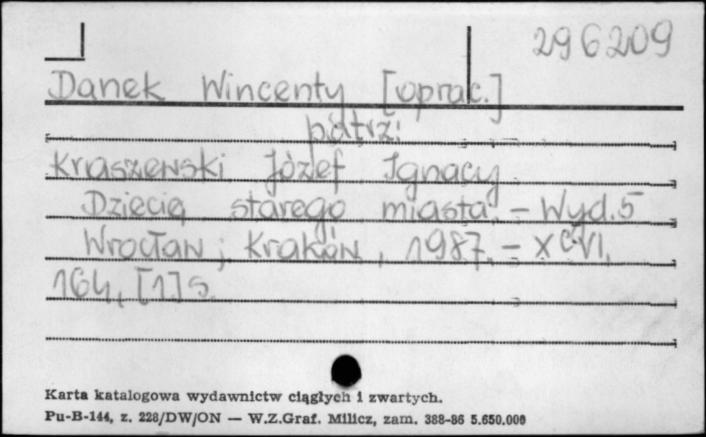 296209
Danek Wincenty [oprac.]
patrz:
Kraszewski Józef Ignacy
Dziecię starego miasta. - Wyd.5
Wrocław ; Kraków, 1987. - XCVI,
164, [1] s.
Karta katalogowa wydawnictw ciągłych i zwartych.
Pu-B-144, z. 228/DW/ON — W.Z.Graf. Milicz, zam. 388-86 5.650.000